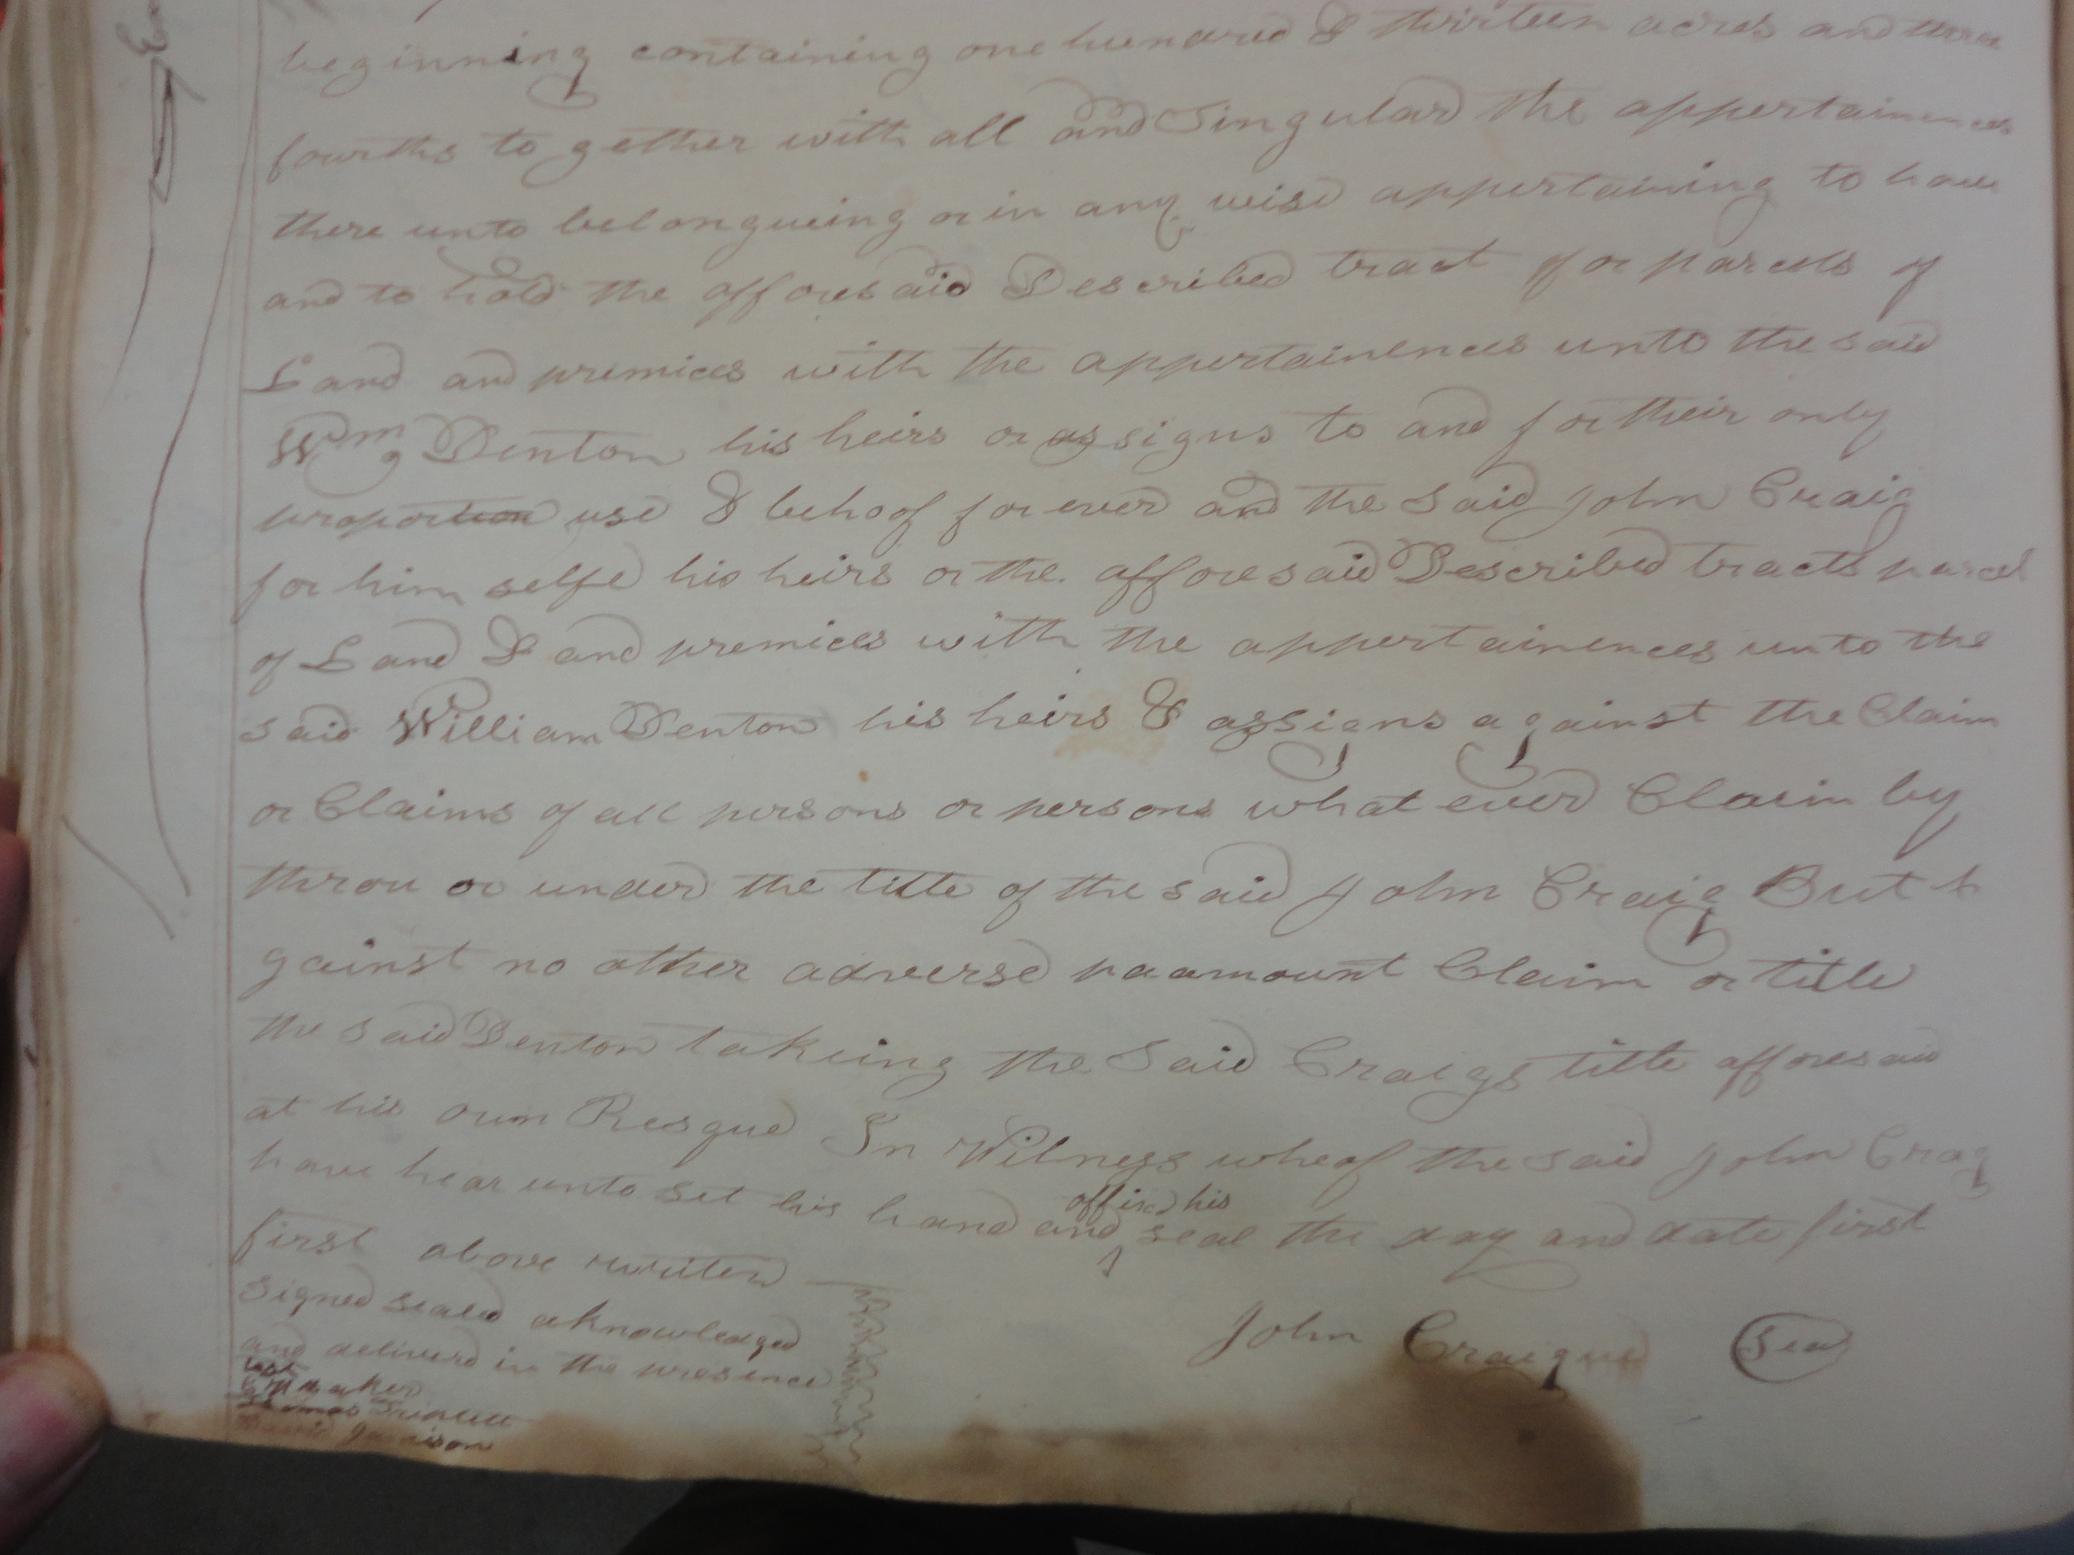 beginning containing one hundred & thirteen acres and three
fourths to gether with all and Singular the appertainences
there unto belongueing or in any wise appertaining to have
and to hold the afforesaid Described tract or parcels of
Land and premices with the appertainences unto the said
Wm Denton his heirs or assigns to and for their only
proportion use & behoof for ever and the said John Craig
for him selfe his heirs or the afforesaid Described tracts parcel
of Land & and premices with the appertainences unto the
said William Denton his heirs & assigns against the Claim
or Claims of all persons or persons what ever Claim by
throu or under the title of the said John Craig But
gainst no other adverse paamount Claim or title
the said Denton takeing the said Craigs title afforesaid
at his own Resque In Witness wheof the said John Crag
have hear unto set his hand and affixed his seal the day and date first
first above writen
Signed sealed aknowledged
and deliverd in the presence
John Craigue Seal